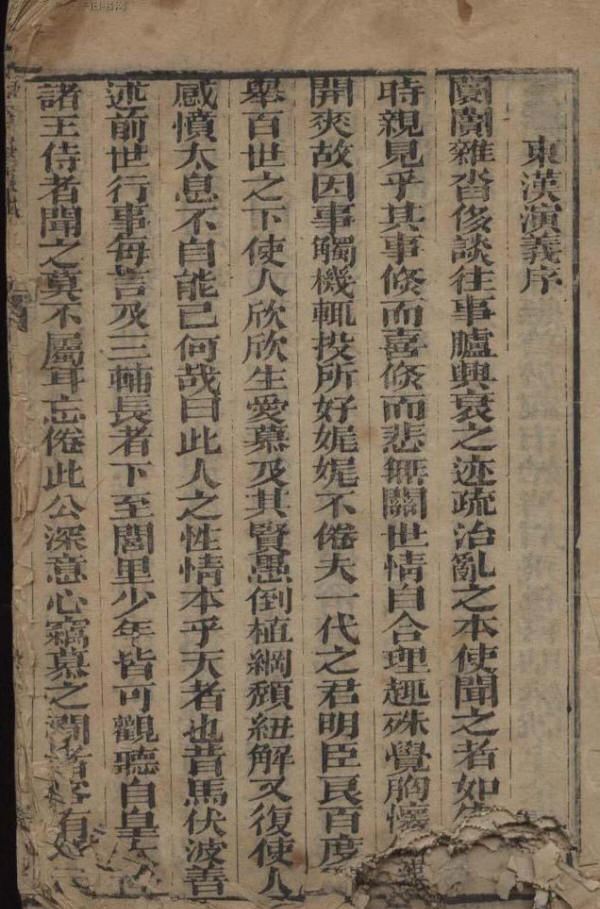 東漢演義序
闤闠雜沓侈談往事臚興衰之迹疏治亂之本使聞之者如
時親見乎其事倏而喜倏而悲無關世情自合理趣殊覺胸懷
開爽故因事觸機輒投所好娓娓不倦夫一代之君明臣良百度
舉百世之下使人欣欣生愛慕及其賢愚倒植綱頹紐解又復使人
感憤太息不自能已何哉曰此人之性情本乎天者也昔馬伏波善
述前世行事每言及三輔長者下至閭里少年皆可觀聽自皇
諸王侍者聞之莫不屬耳忘倦此公深意心竊慕之